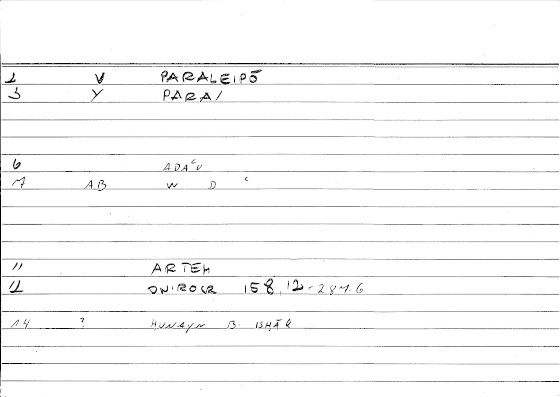 1 V PARALEIPŌ
3 Y PARA/
6 ADAᶜU
7 AB W D ᶜ
11 ARTEM
12 ONIROCR 158,12-287.6
14 ? HUNAYN B. ISHĀK